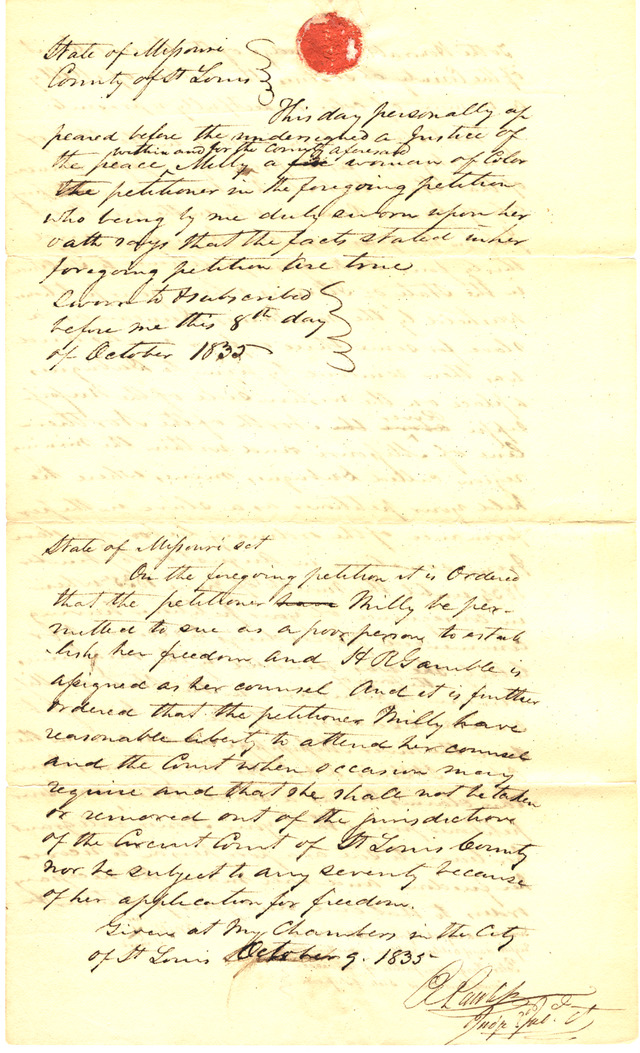 State of Missouri
County of St Louis
This day personally ap
peared before the undersigned a Justice of
within and for the County aforesaid
the peace Milly a woman of Color
the petitioner in the foregoing petition
who being by me duly sworn upon her
oath says that the facts stated in her
foregoing petition are true
Sworn to & subscribed
before me this 8th day
of October 1835
State of Missouri sct
On the foregoing petition it is Ordered
that the petitioner Milly be per-
mitted to sue as a poor person to estab
lish her freedom and H R Gamble is
assigned as her counsel. And it is further
ordered that the petitioner Milly have
reasonable liberty to attend her counsel
and the Court when occasion may
require and that she shall not be taken
or removed out of the jurisdiction
of the Circuit Court of St Louis County
nor be subject to any severity because
of her application for freedom.
Given at My Chambers in the City
of St Louis October 9. 1835
Lawless
Judge